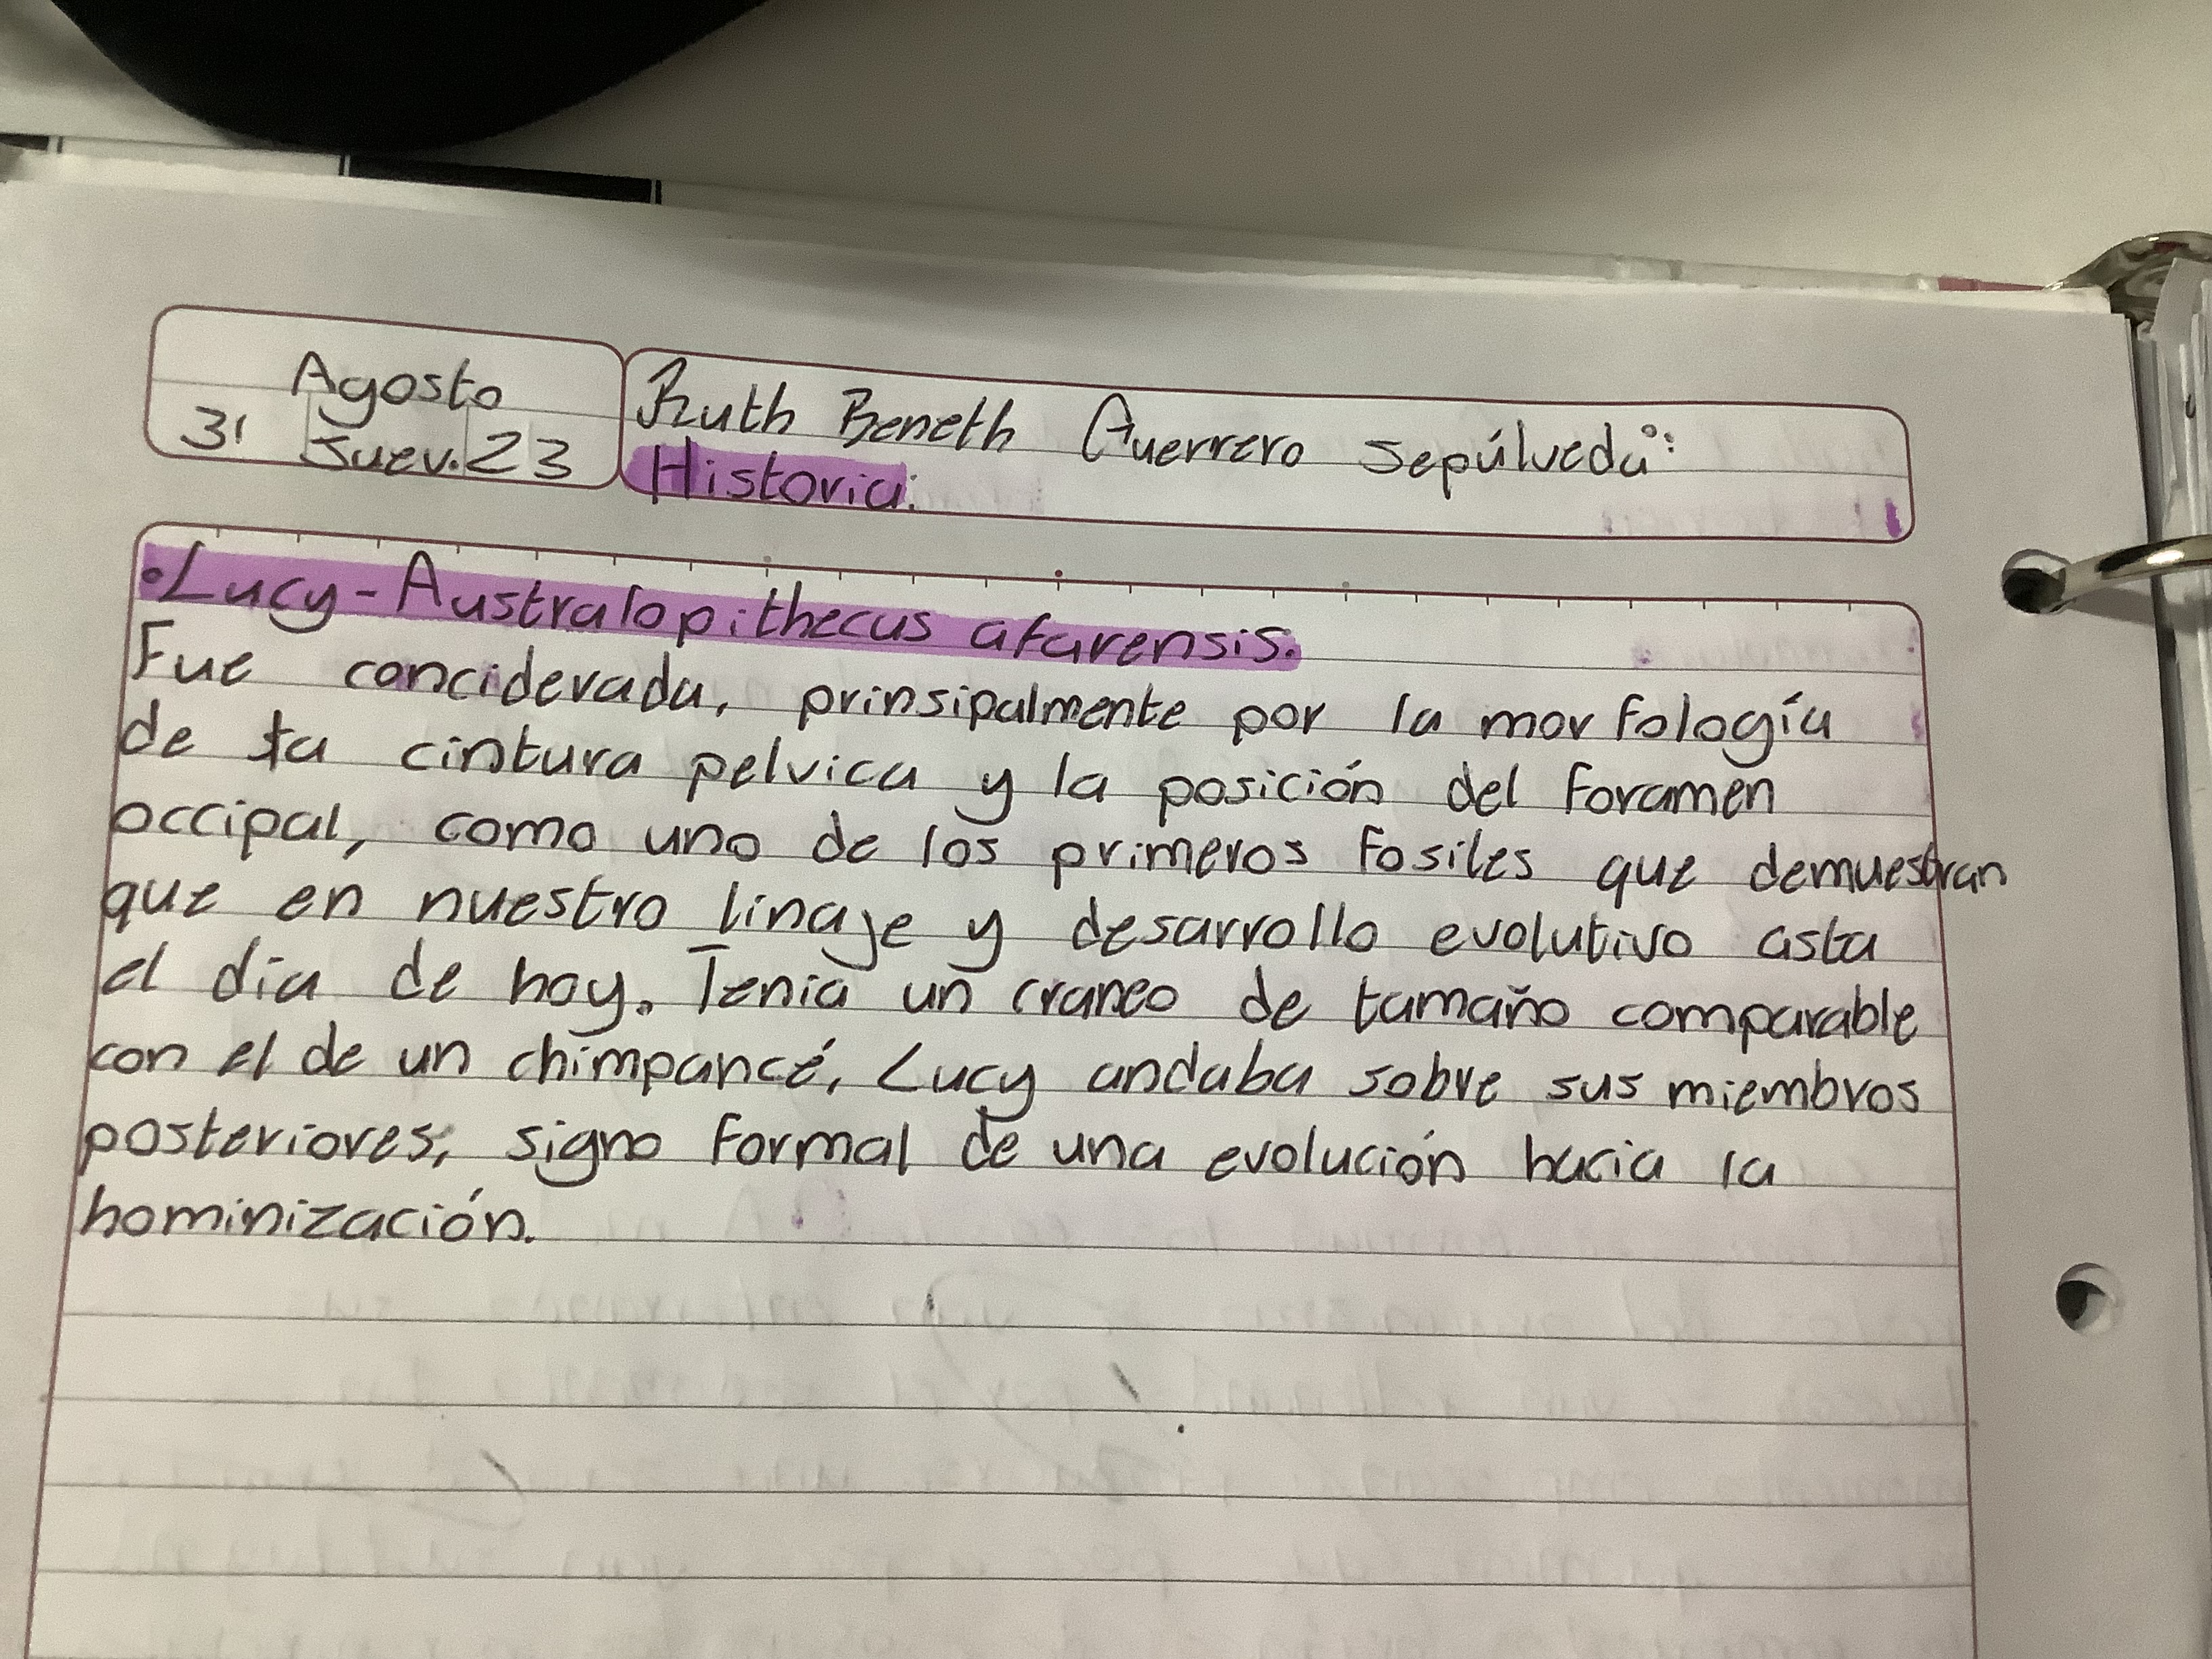 Agosto
31 Juev. 23
Ruth Beneth Guerrero Sepúlveda:
Historia:
•Lucy-Australopithecus afarensis.
Fue conciderada, prinsipalmente por la morfología
de la cintura pelvica y la posición del foramen
occipal, como uno de los primeros fosiles que demuestran
que en nuestro linaje y desarrollo evolutivo asta
el día de hoy. Tenia un craneo de tamaño comparable
con el de un chimpancé, Lucy andaba sobre sus miembros
posteriores, signo formal de una evolución hacia la
hominización.